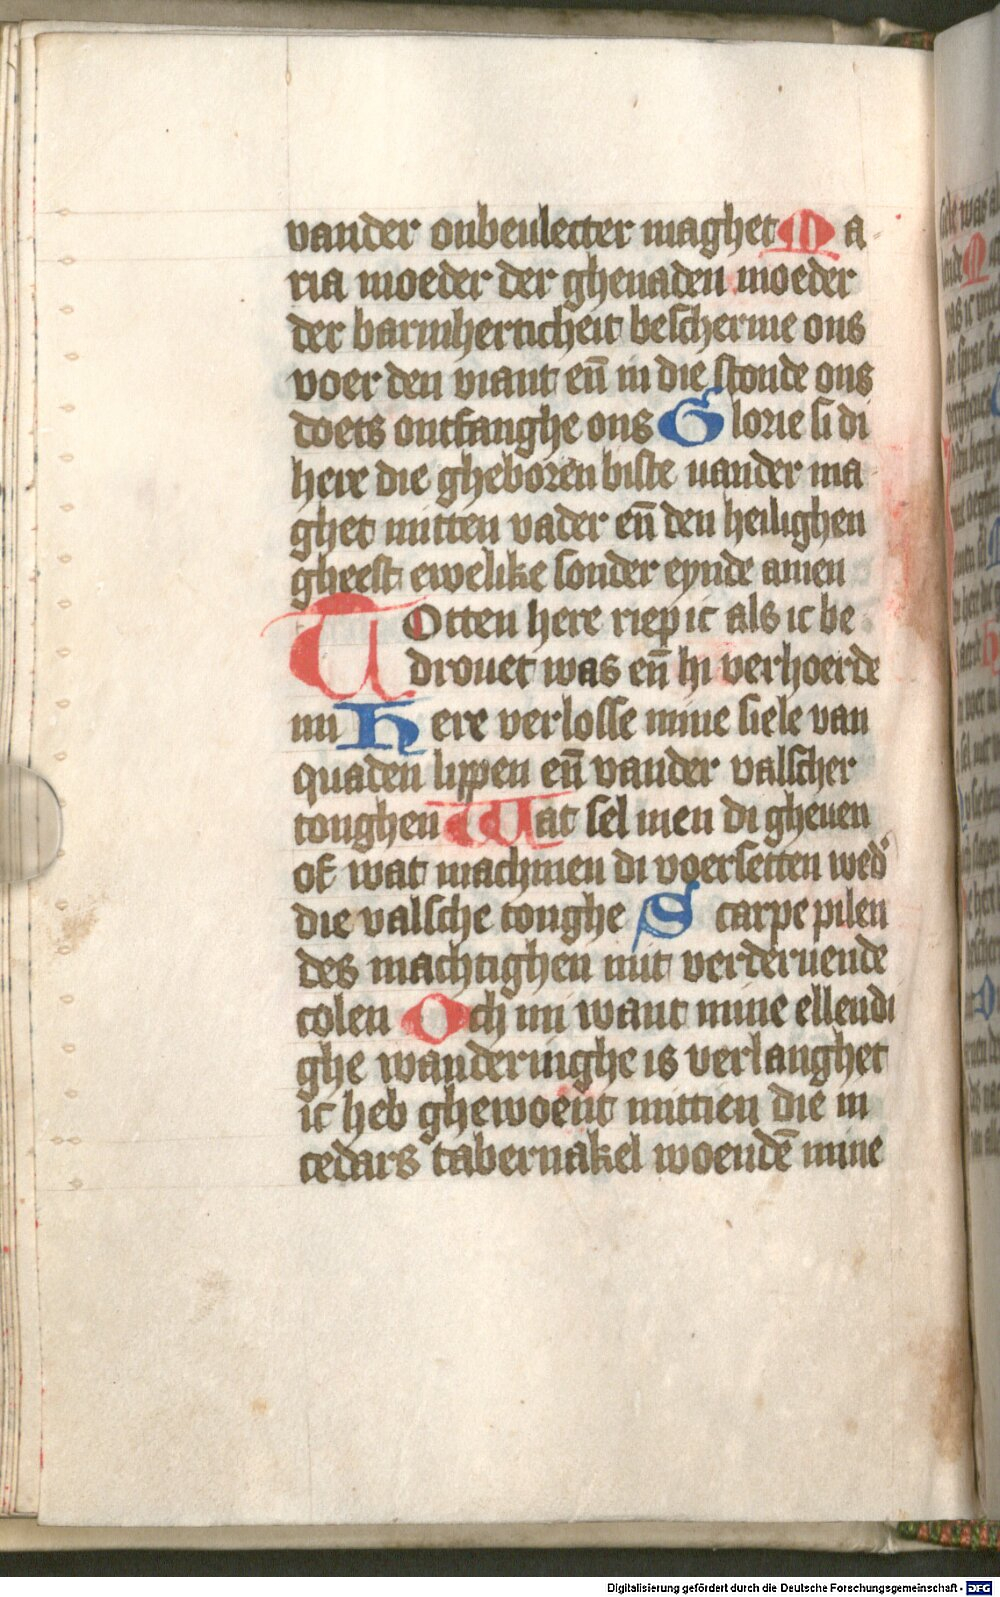 vander onbeulecter maghet Ma
ria moeder der ghenaden moeder
der barmherticheit bescherme ons
voer den viant en̄ in die stonde ons
doets ontfanghe ons Glorie si di
here die gheboren biste uander ma
ghet mitten vader en̄ den heilighen
gheest ewelike sonder eynde amen
TOtten here riep ic als ic be
drouet was en̄ hi verhoerde
mi Here verlosse mine siele van
quaden lippen en̄ vander valscher
tonghen Wat sel men di gheuen
of wat machmen di voersetten wed'
die valsche tonghe Scarpe pilen
des machtighen mit verderuende
colen Och mi want mine ellendi
ghe wanderinghe is verlanghet
ic heb ghewoent mittien die in
cedars tabernakel woendē mine
Digitalisierung gefördert durch die Deutsche Forschungsgemeinschaft - DFG